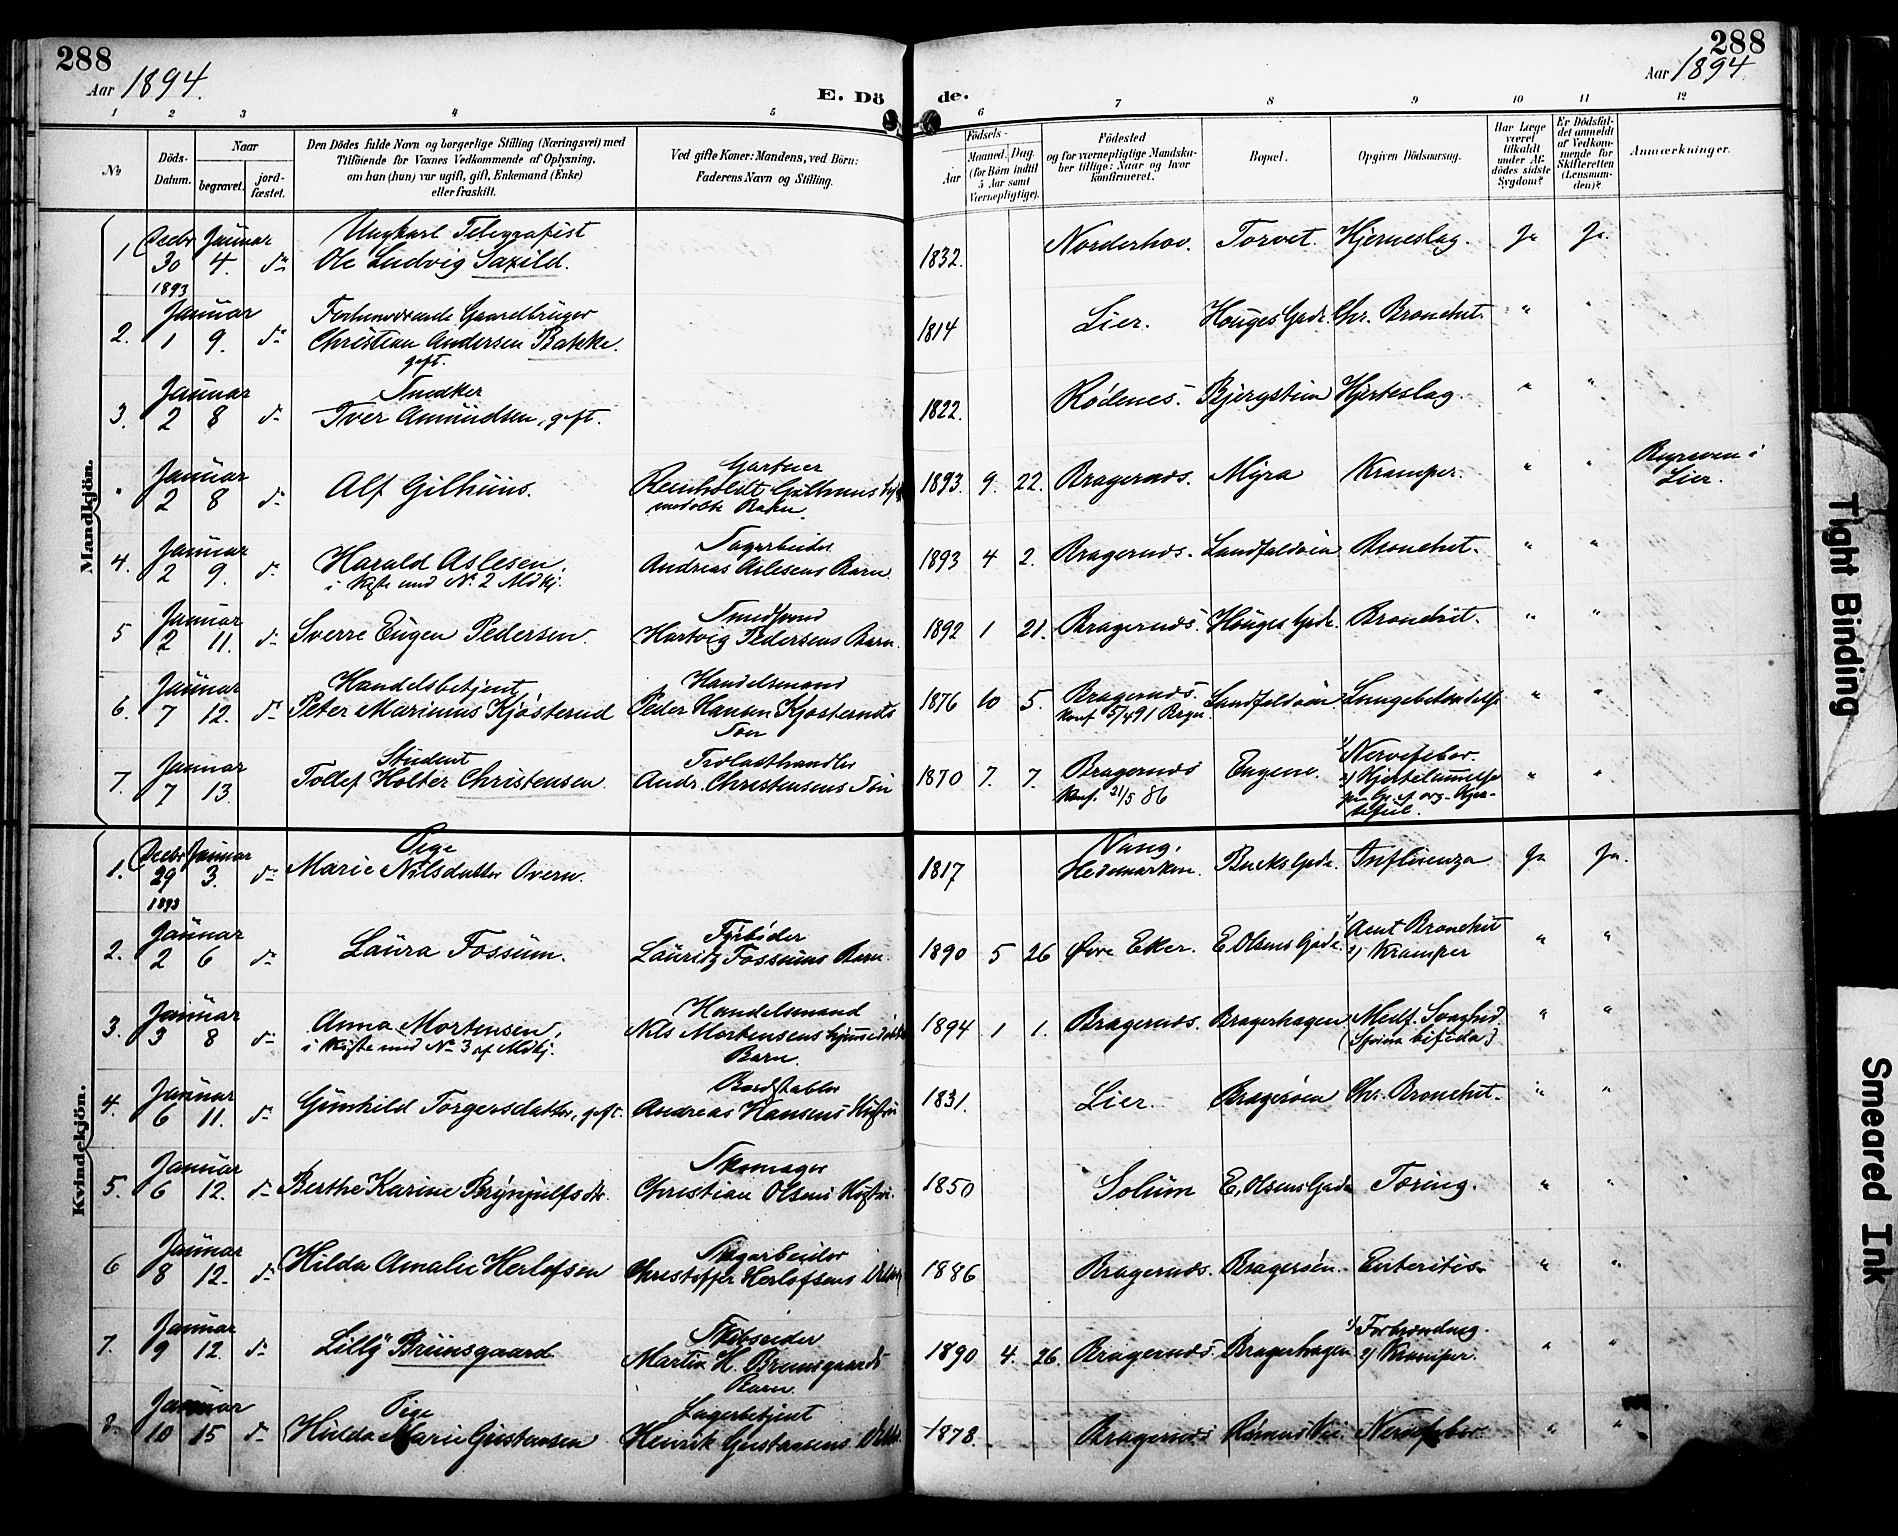 288
Aar 1894.
E. Dö
1 2 3 4 5
No
Döds-Datum.
Naar
begravet.
jord-fæstet.
Den Dödes fulde Navn og borgerlige Stilling (Næringsvei) med
Tilföiende for Voxnes Vedkommende af Oplysning,
om han (hun) var ugift, gift, Enkemand (Enke)
eller fraskilt.
Ved gifte Koner: Mandens, ved Börn:
Faderens Navn og Stilling.
Mandkjön.
1 Decbr 30 1893 Januar 4. do Ungkarl Telegrafist
Ole Ludvig Saxild.
2. Januar 1 9. do Forhenværende Gaardbruger
Christian Andersen Bakke.
gift.
3. Januar 2 8 do Snedker
Iver Amundsen, gift.
" Januar 2 8 do Alf Gilhuus. Gartner
Reinholdt Gilhuus
Barn.
4. Januar 2 9. do Harald Aslesen, Sagarbeider
i Kiste med No 2 Mdkj. Andreas Aslesens Barn
5 Januar 2 11. do Sverre Eugen Pedersen. Smedsvend
Hartvig Pedersens Barn.
6. Januar 7 12. do Handelsbetjent Handelsmand
Peter Marinius Kjøsterud Peder Hansen Kjøsteruds
Søn
7. Januar 7 13. Student Trælasthandler
Tollef Holter Christensen. Andr. Christensens Søn
Kvindekjön.
1. Decbr 29 1893 Januar 3. do Pige
Marie Nilsdatter Overn.
2. Januar 2 6 do Laura Fossum. Fyrbøder
Lauritz Fossums Barn.
3. Januar 3 8 do Anna Mortensen, Handelsmand
i Kiste med No 3 af Mdkj. Nils Mortensens hjemmedøbte
Barn.
4. Januar 6 11. do Gunhild Torgersdatter, gift. Bordstabler
Andreas Hansens Hustru
5. Januar 6 12. do Berthe Karine Brynjulfsdtr. Skomager
Christian Olsens Hustru.
6 Januar 8 12. do Hilda Amalie Herlofsen Sagarbeider
Christoffer Herlofsens Datter
7. Januar 9 12. do Lilly Bruusgaard Skibsreder
Martin H. Bruusgaards
Barn.
8. Januar 10 15 do Pige Lagerbetjent
Hulda Marie Gustavsen Henrik Gustavsens Datter
288
Aar 1894.
de.
6 7 8 9 10 11 12
Födsels-
Aar
Maaned. Dag.
(for Börn indtil
5 Aar samt
Værnepligtige).
Födested
og for værnepligtige Mandska-
ber tillige: Naar og hvor
konfirmeret.
Bopæl.
Opgiven Dödsaarsag.
Har Læge
været
tilkaldt
under Af-
dödes sidste
Sygdom?
Er Dödsfal-
det anmeldt
af Vedkom-
mende for
Skifteretten
(Lensman-
den)?
Anmærkninger.
1832. Norderhov. Torvet. Hjerneslag. Ja Ja.
1814 Lier. Houges Gade. Chr. Bronchit. " "
1822. Rødenes. Bjergstien Hjerteslag. " "
1893. 9. 22. Bragernæs. Myra Kramper. " " Begraven i
Lier.
1893 4 2. Bragernæs. Landfaldøen Bronchit. " "
1892 1 21. Bragernæs. Houges Gade. Bronchit. " "
1876 10 5. Bragernæs. Landfaldøen. Lungebetændelse " "
Konf. 5/4 91 Brgn.
1870 7. 7. Bragernæs Engene. 1) Nervefeber. " "
Konf. 21/5 86 2) Hjertelammelse
org. Hjer-
tefeil.
1817 Vang, Hedemarken. Bucks Gade. Influenza Ja Ja.
1890 5 26 Øvre Eker. E. Olsens Gade. 1) Acut Bronchit " "
2) Kramper
1894 1 1. Bragernæs. Bragerhagen Medf. Svaghed. " "
(Spina bifida)
1831. Lier. Bragerøen Chr. Bronchit. " "
1850 Solum E. Olsens Gade Tæring. " "
1886 Bragernæs. Bragerøen. Enteritis " "
1890 4. 26. Bragernæs. Bragerhagen 1) Forbrænding. " "
2) Kramper.
1878. Bragernæs Nervefeber " "
Tight Binding
Smeared Ink